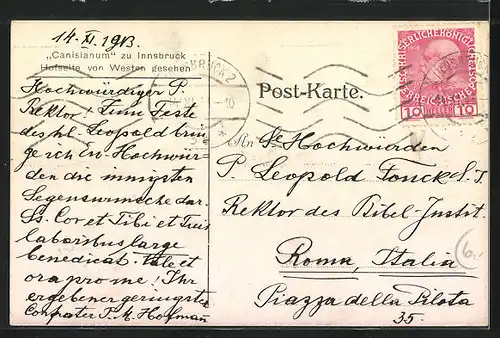 14. XI. 1913.
„Canisianum" zu Innsbruck
Hofseite von Westen gesehen
Hochwürdiger P.
Rektor! Zum Feste
des hl. Leopold brin-
ge ich Eu. Hochwür-
den die innigsten
Segenswünsche dar.
Ss. Cor et Tibi et Tuis
laboribus large
benedicat. Vale et
ora pro me! Ihr
ergebener geringster
Confrater P. M. Hofmañ
Post-Karte.
An Se Hochwürden
P. Leopold Fonck S. J.
Rektor des Bibel-Instit.
Roma, Italia
Piazza della Pilota
35.
10 HELLER 10